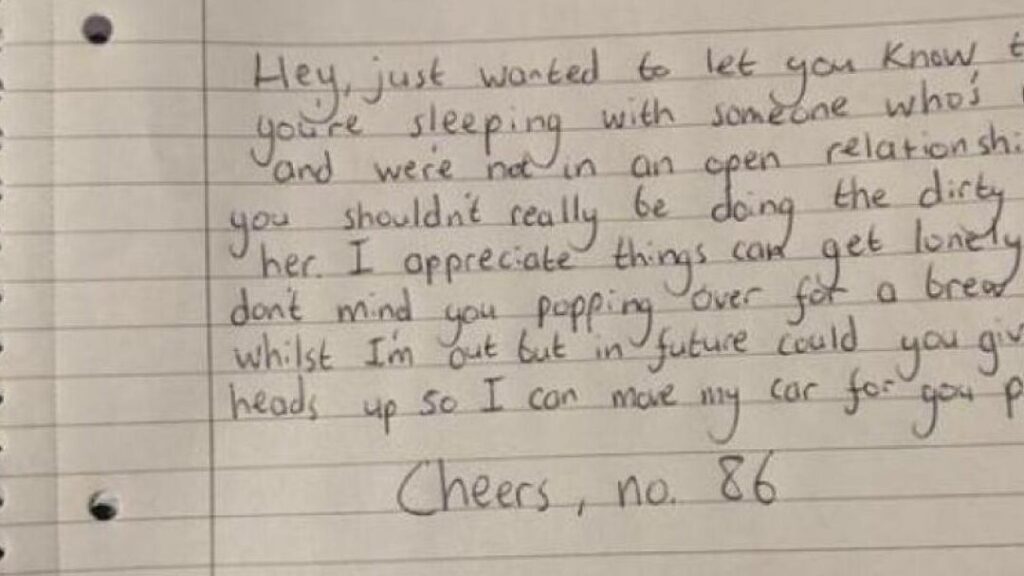 Hey, just wanted to let you know
you're sleeping with someone who's
and we're not in an open
you shouldn't really be doing the dirty
her. I appreciate things can get lonely
don't mind you popping over for a brew
whilst I'm out but in future could you
heads up so I can move my car for you
Cheers, no. 86